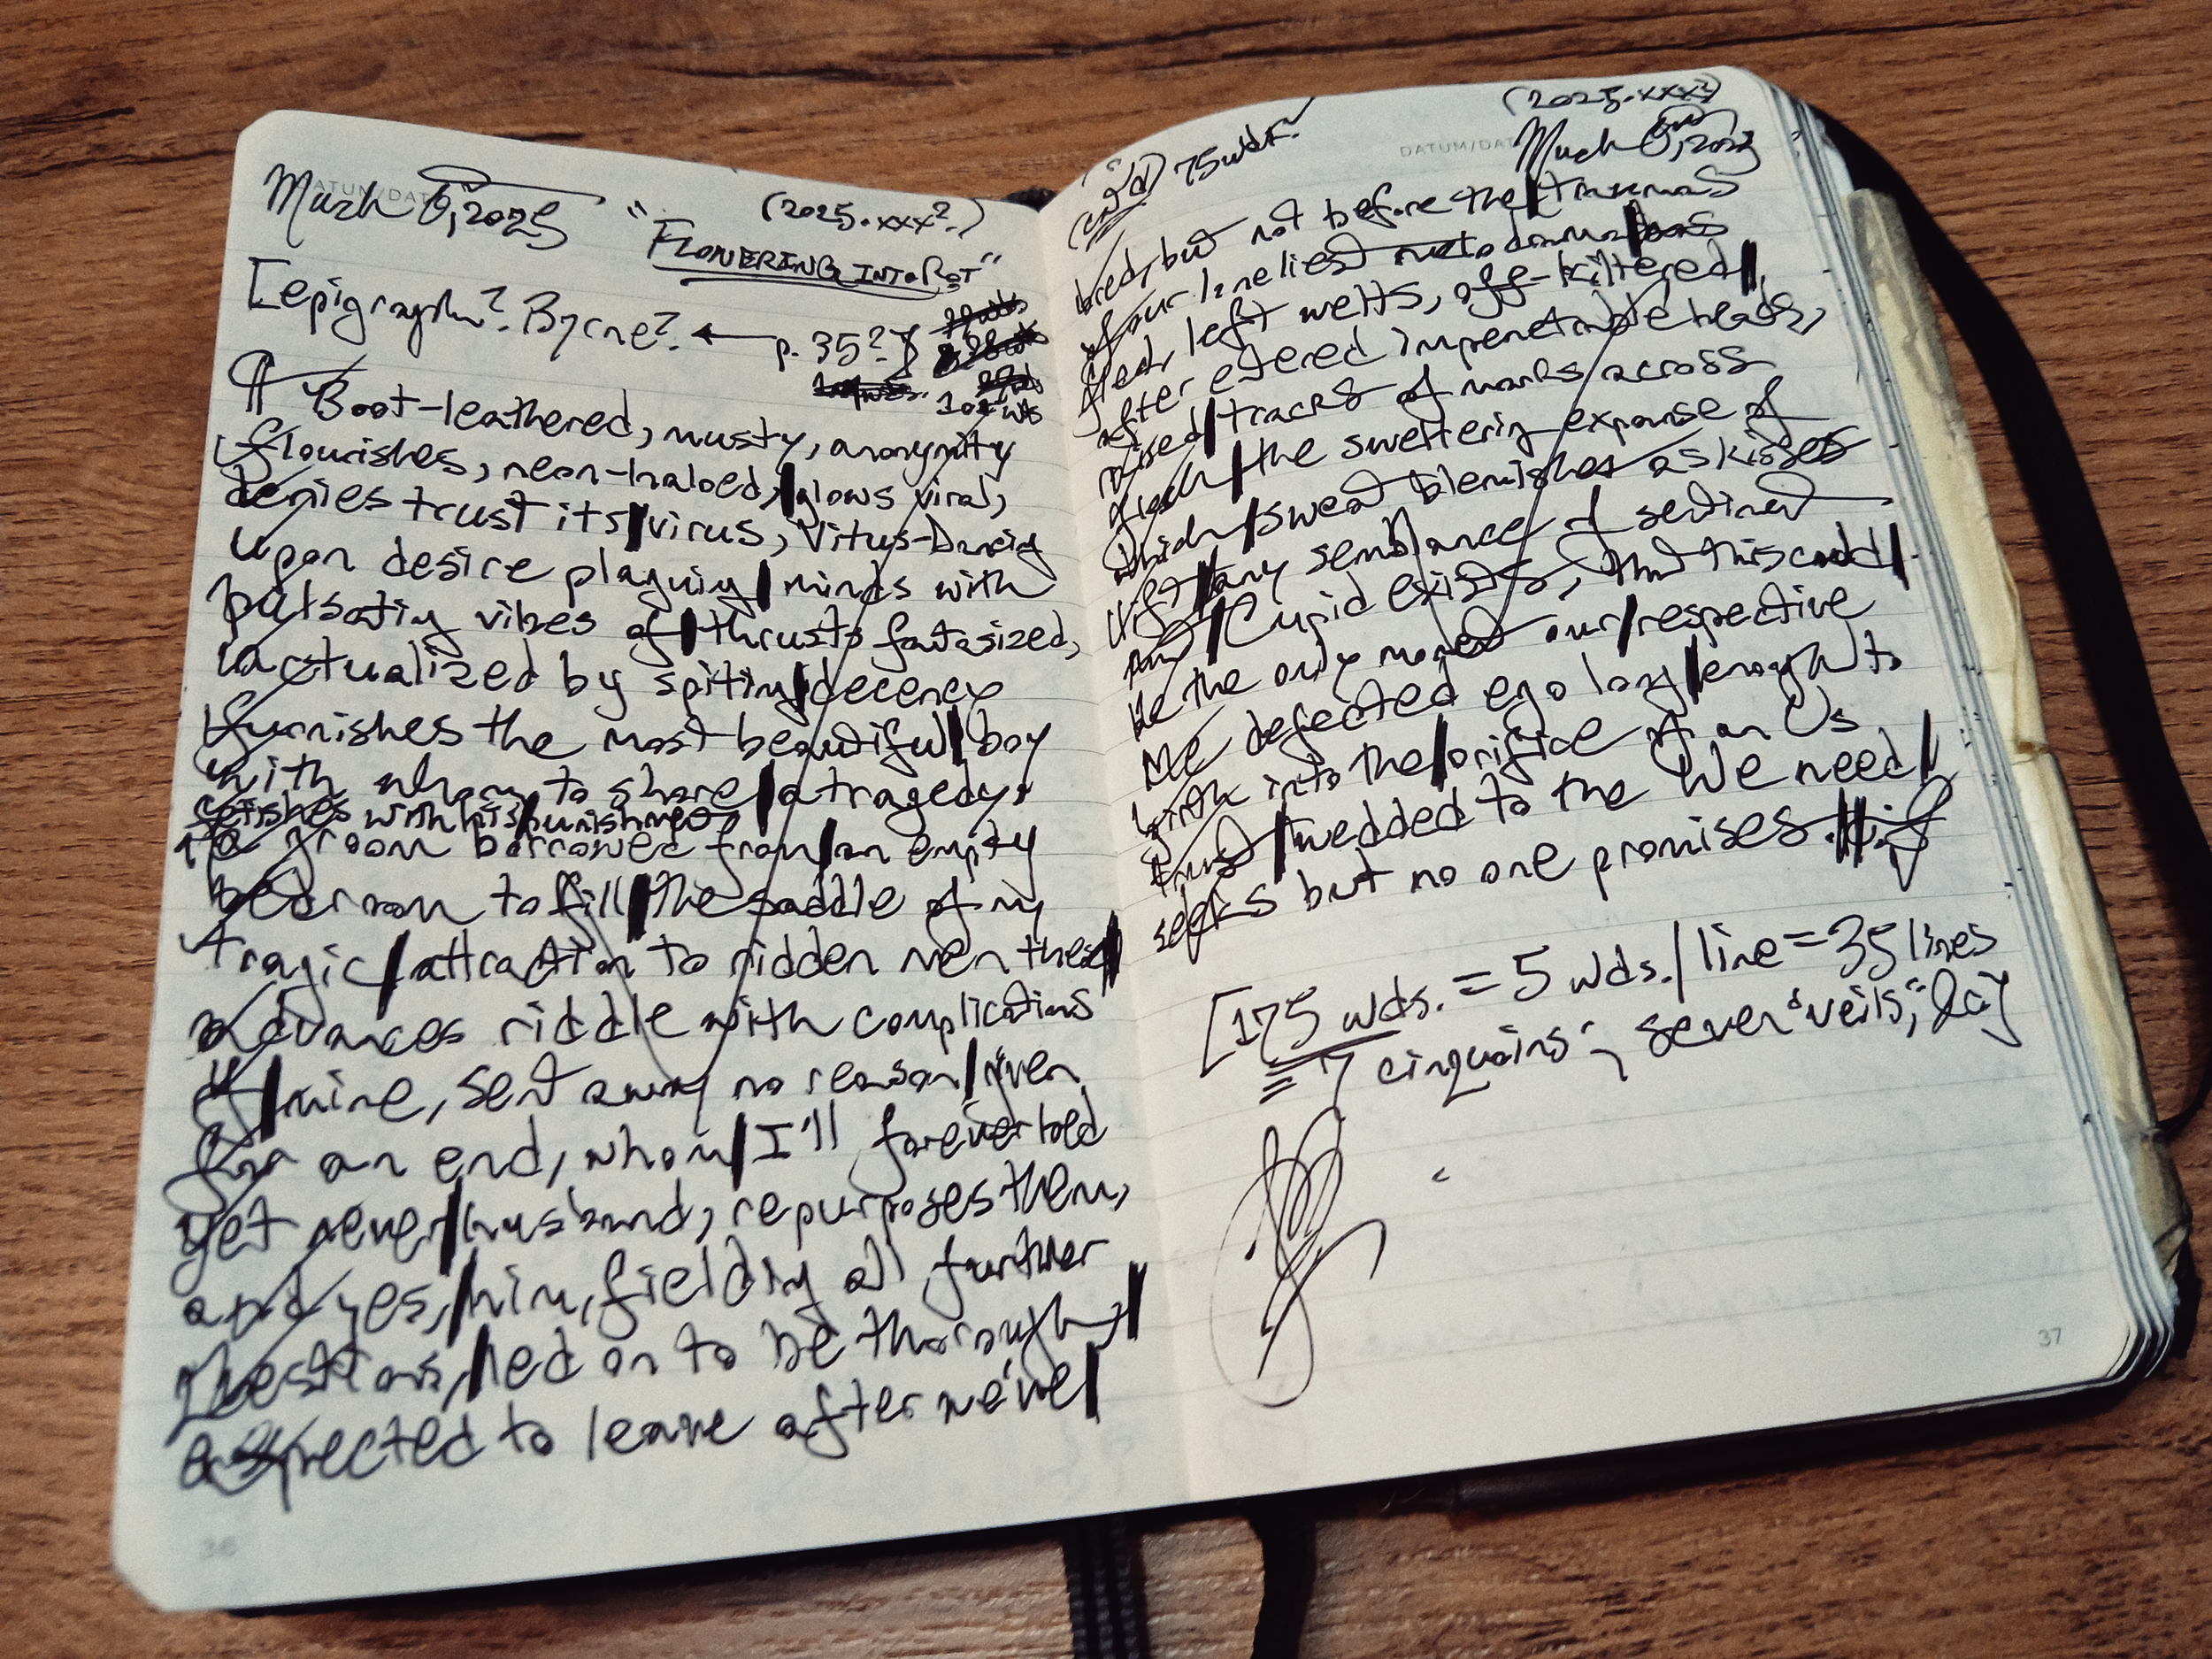 March 6, 2025
(2025.xxx?.)
"FLOWERING INTO ROT"
[epigraph? Byrne? ← p. 35?]
Boot-leathered, musty, anonymity
flourishes, neon-haloed,|glows viral,
denies trust its|virus, Vitus-Dancing
upon desire plaguing|minds with
pulsating vibes of|thrusts fantasized,
unactualized by spiting|decency
furnishes the most beautiful|boy
with whom to share|a tragedy,
fetishes with his|punishment,
a groom borrowed from|an empty
bedroom to fill|the saddle of my
tragic|attraction to ridden men these|
advances riddle with complications
of|mine, sent away no reason|given
for an end, whom|I'll forever hold
yet never|husband, repurposes them,
and yes,|him, fielding all further
questions,|led on to be thorough|
expected to leave after we've|
(cont'd) 75 wds.
(2025.xxx?)
March 6, 2025
bred, but not before the|traumas
of our loneliest
fled, left welts, off-kiltered|,
after entered impenetrable heads,
raised|tracks of marks across
flesh|the sweltering expanse of
which|sweat blemishes as kisses
lift|any semblance of sentiment
Cupid exists, that this could|
be the only moment our|respective
defected ego long|enough to
into the|orifice of an Us
trust|wedded to the We need|
seeks but no one promises.
[175 wds. = 5 wds./line = 35 lines
= 7 cinquains; seven "veils,"
37
36